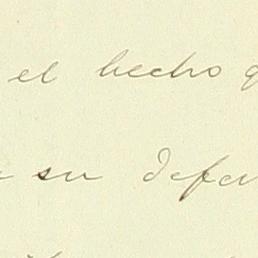 el hecho
su defen